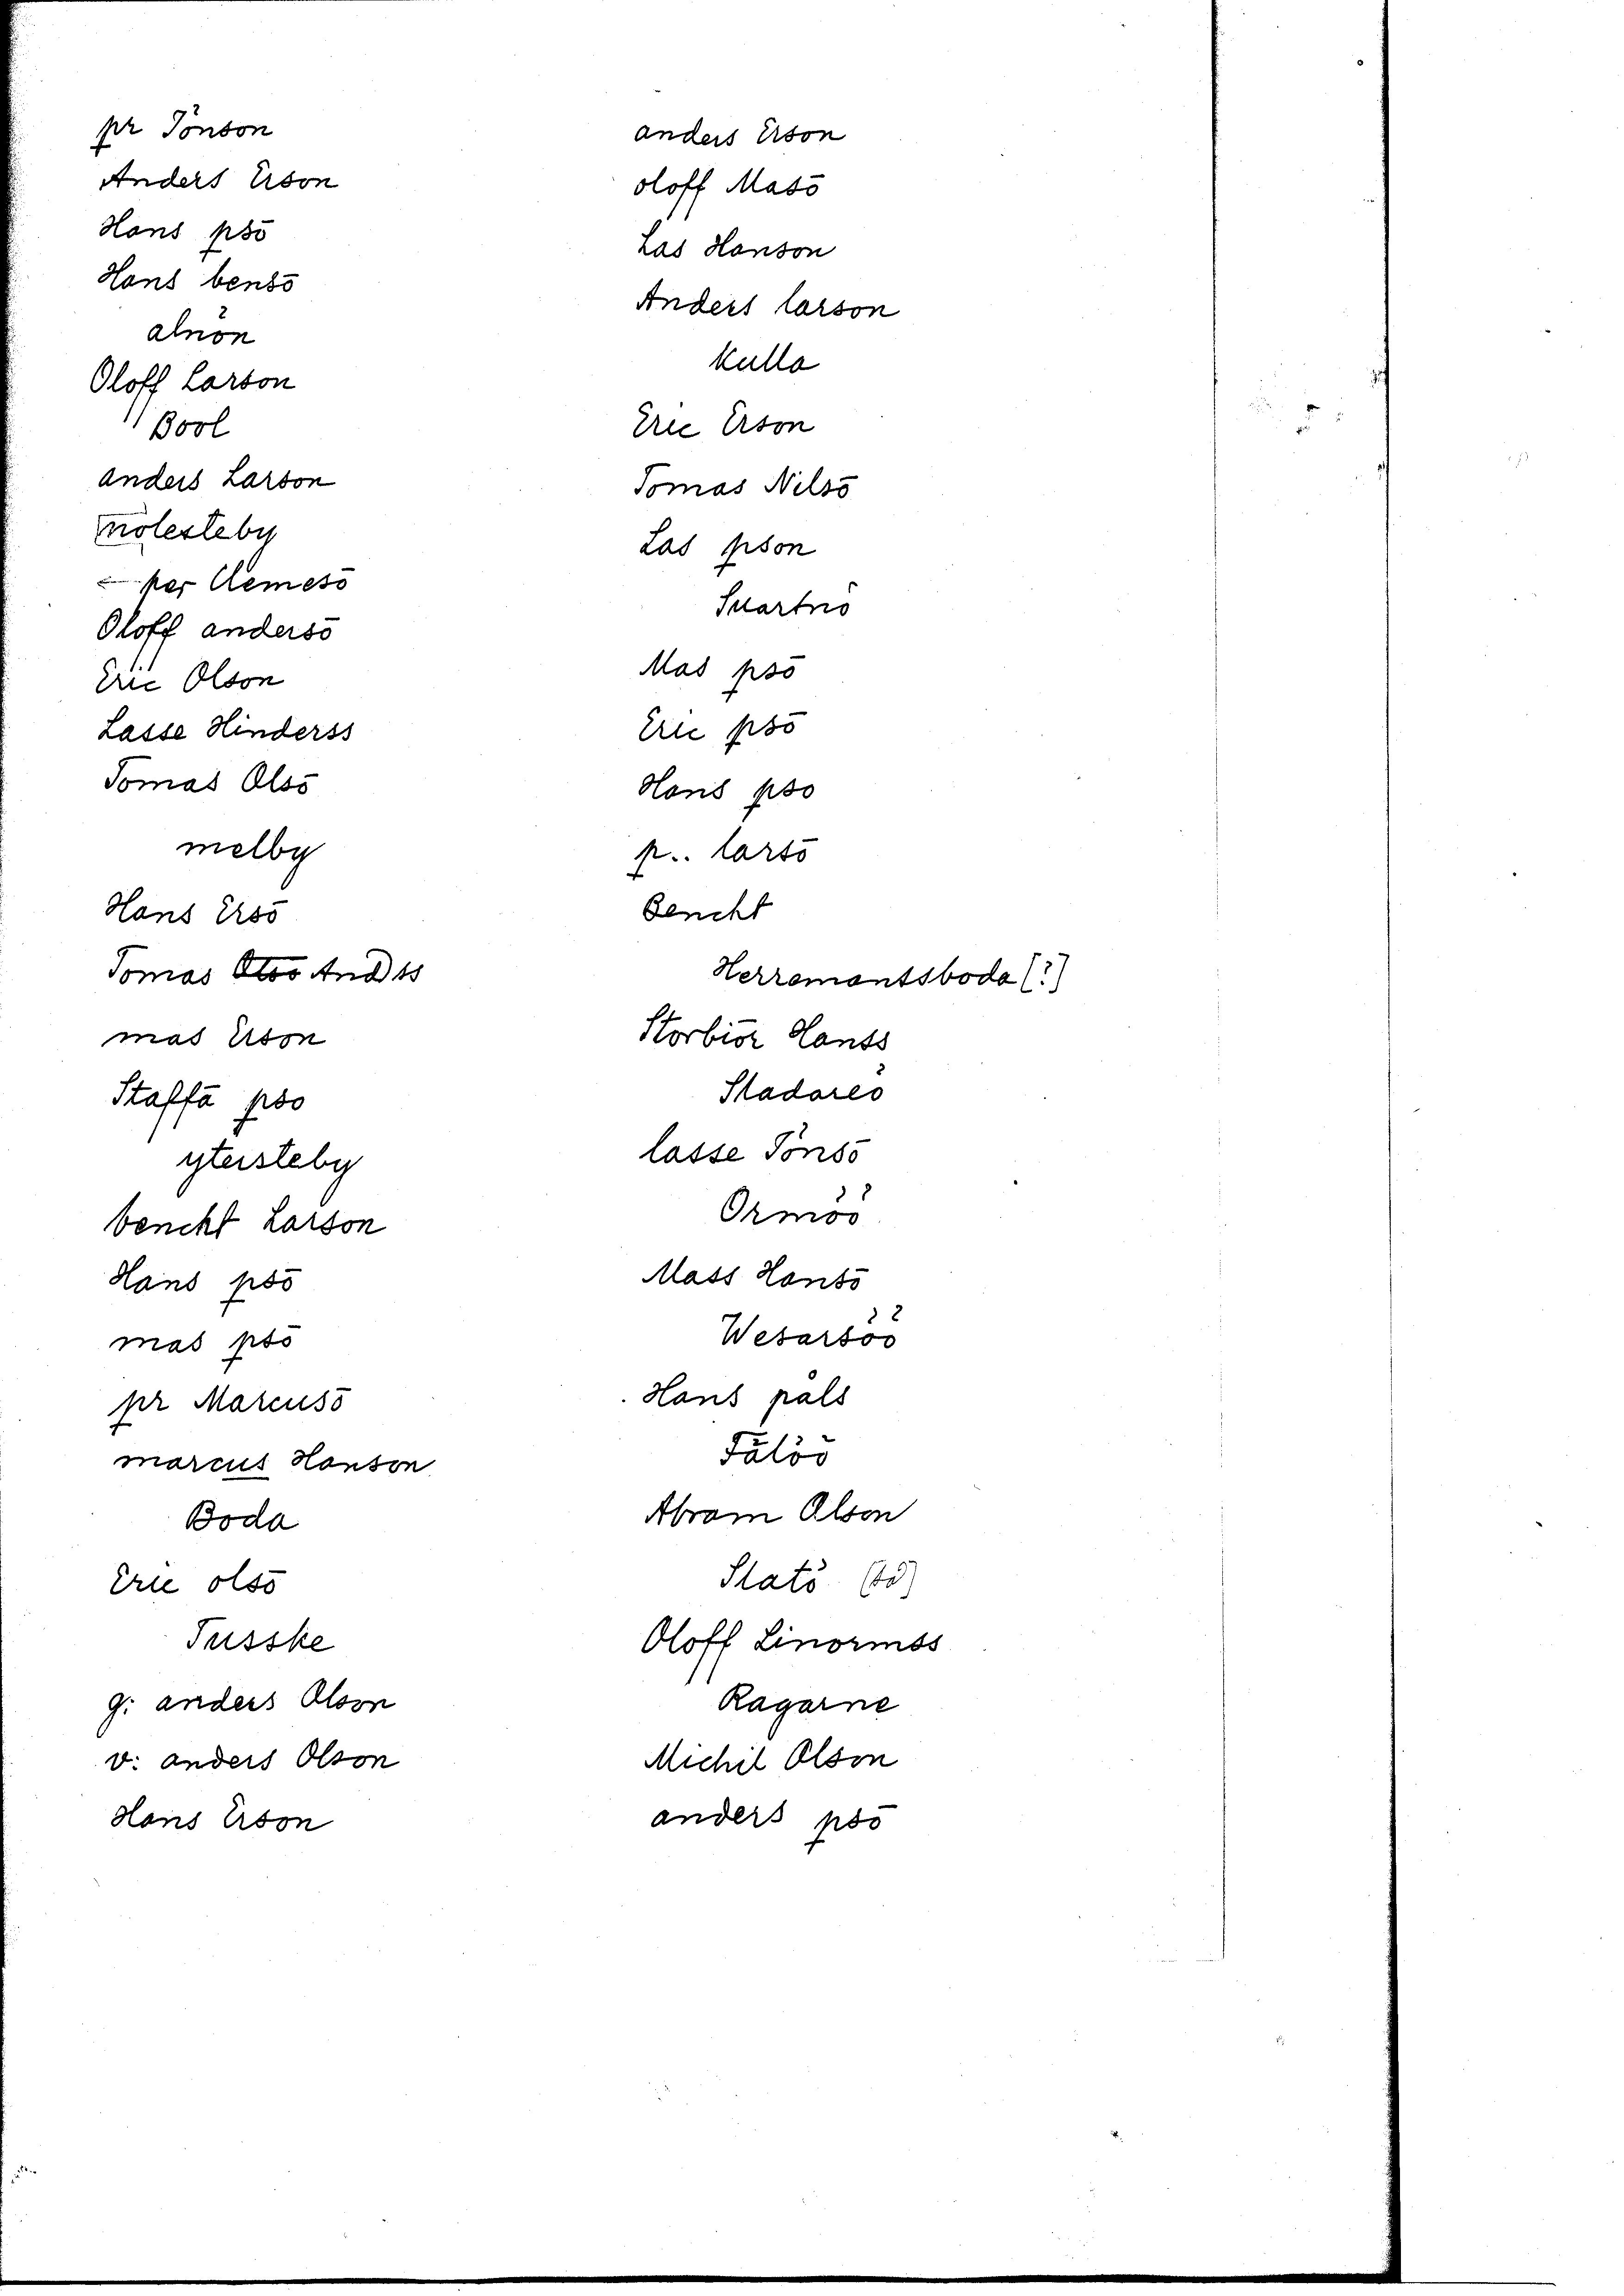 pr Jönson
Anders Erson
Hans psō
Hans bensō
alnön
Oloff Larson
Bool
anders Larson
nolesteby
per Clemesō
Oloff andersō
Eric Olson
Lasse Hinderss
Tomas Olsō
melby
Hans Ersō
Tomas Olso Andss
mas Erson
Staffā pso
ytersteby
benckt Larson
Hans psō
mas psō
pr Marcusō
marcus Hanson
Boda
Eric olsō
Tusske
g: anders Olson
v: anders Olson
Hans Erson
anders Erson
oloff Masō
Las Hanson
Anders larson
Kulla
Eric Erson
Tomas Nilsō
Las pson
Suartnö
Mas psō
Eric psō
Hans pso
p.. larsō
Bencht
Herramantsboda [?]
Storbiōr Hanss
Sladareö
lasse Jönsō
Ormöö
Mass Hansō
Wesarsöö
Hans påls
Fälöö
Abram Olson
Slatö
Oloff Linormss
Ragarne
Michil Olson
anders psō